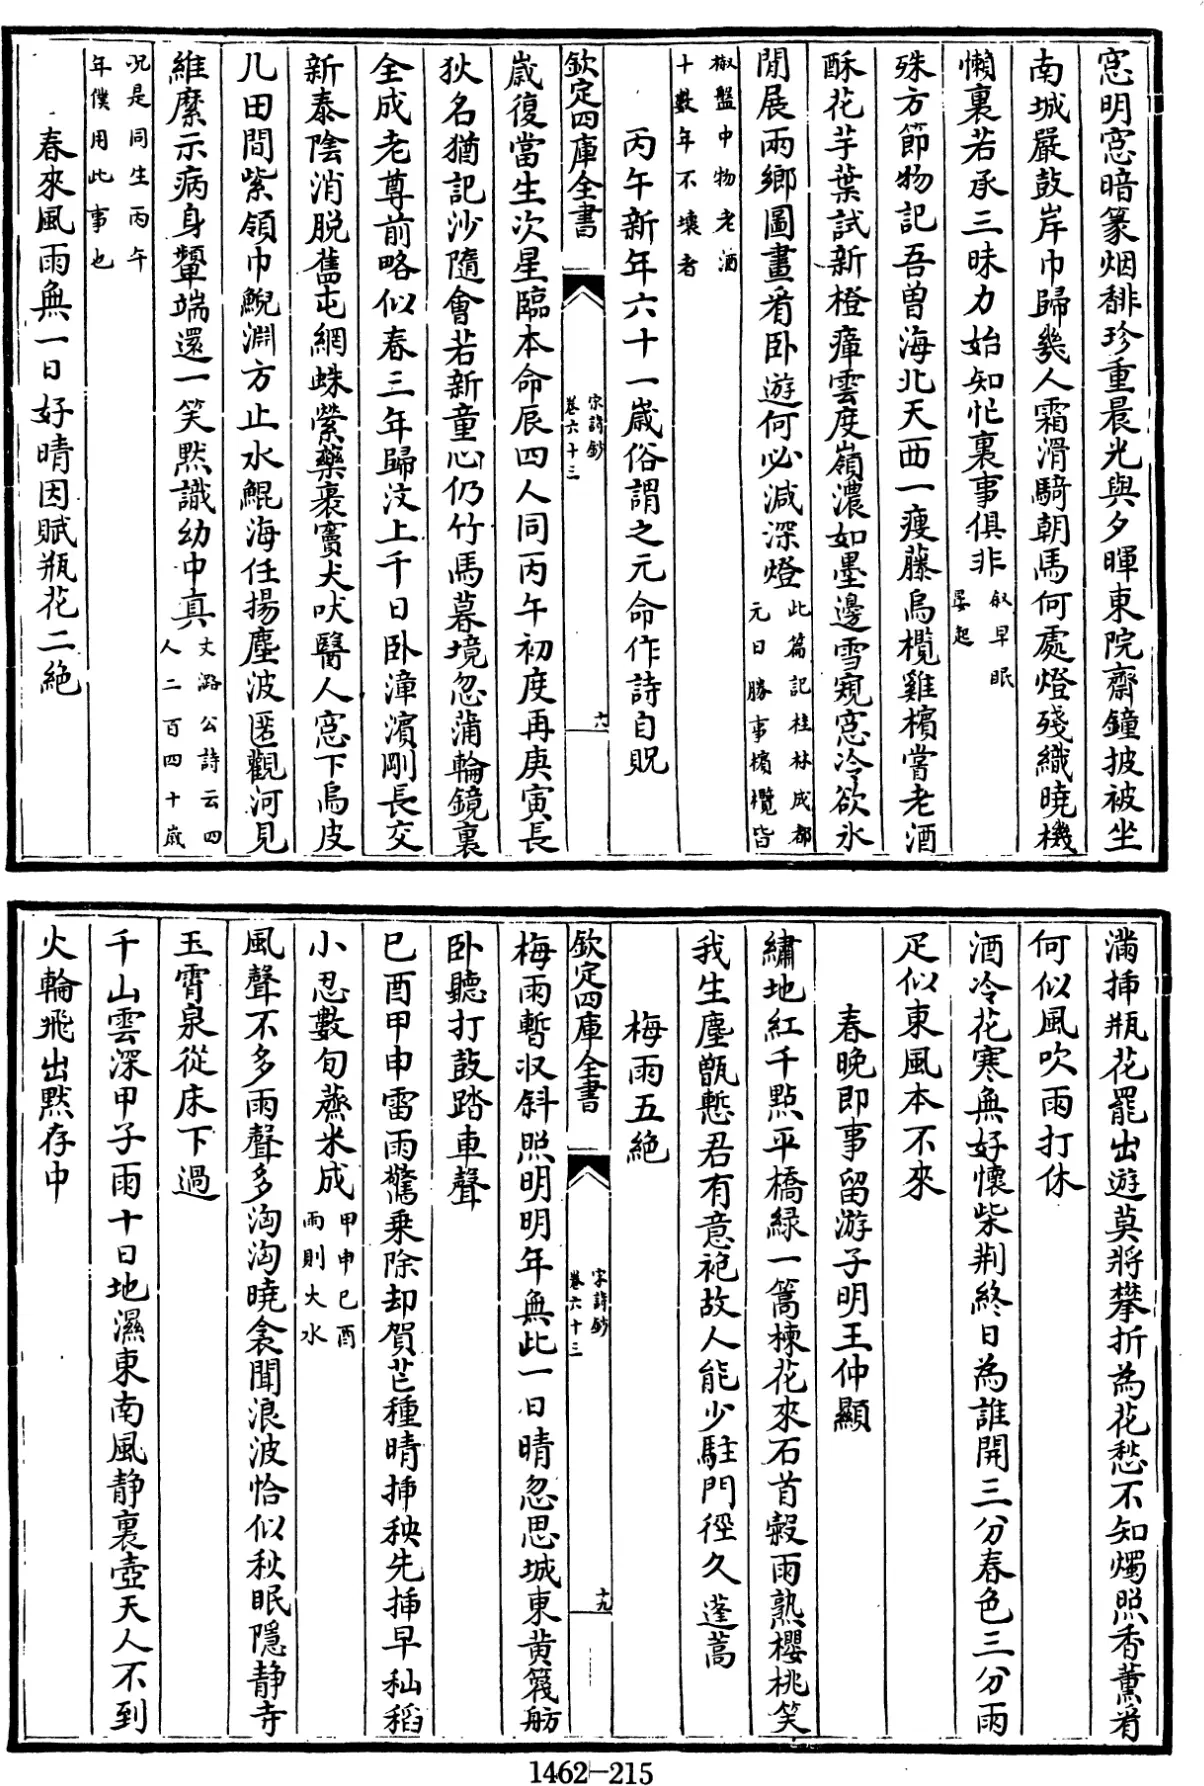 窓明窓暗篆烟馡珍重晨光與夕暉東院齋鐘披被坐
南城嚴鼓岸巾歸幾人霜滑騎朝馬何處燈殘織曉機
懶裏若承三昧力始知忙裏事俱非叙早眠晏起
殊方節物記吾曽海北天西一瘦藤烏欖雞檳嘗老酒
酥花芋葉試新橙瘴雲度嶺濃如墨邊雪窺窓冷欲氷
閒展兩鄉圖畫看卧遊何必減深燈此篇記桂林成都元日勝事檳欖皆
椒盤中物老酒十數年不壞者
丙午新年六十一歲俗謂之元命作詩自貺
欽定四庫全書
宋詩鈔
卷六十三
六
歲復當生次星臨本命辰四人同丙午初度再庚寅長
狄名猶記沙隨會若新童心仍竹馬暮境忽蒲輪鏡裏
全成老尊前略似春三年歸汶上千日卧漳濱剛長交
新泰陰消脱舊屯網蛛縈藥裹竇犬吠醫人窓下烏皮
几田間紫領巾鯢淵方止水鯤海任揚塵波匿觀河見
維縻示病身顰端還一笑黙識幼中真文潞公詩云四人二百四十歲
况是同生丙午年僕用此事也
春來風雨無一日好晴因賦瓶花二絶
滿揷瓶花罷出遊莫將攀折為花愁不知燭照香薰看
何似風吹雨打休
酒冷花寒無好懷柴荆終日為誰開三分春色三分雨
疋似東風本不來
春晚即事留游子明王仲顯
繡地紅千㸃平橋緑一篙楝花來石首榖雨熟櫻桃笑
我生塵甑慙君有意袍故人能少駐門徑久蓬蒿
梅雨五絶
欽定四庫全書
宋詩鈔
卷六十三
十九
梅雨暫收斜照明明年無此一日晴忽思城東黄篾舫
卧聽打鼓踏車聲
已酉甲申雷雨驚乗除却賀芒種晴揷秧先揷早秈稻
小忍數旬蒸米成甲申已酉雨則大水
風聲不多雨聲多洶洶曉衾聞浪波恰似秋眠隱静寺
玉霄泉從床下過
千山雲深甲子雨十日地濕東南風静裏壺天人不到
火輪飛出黙存中
1462-215